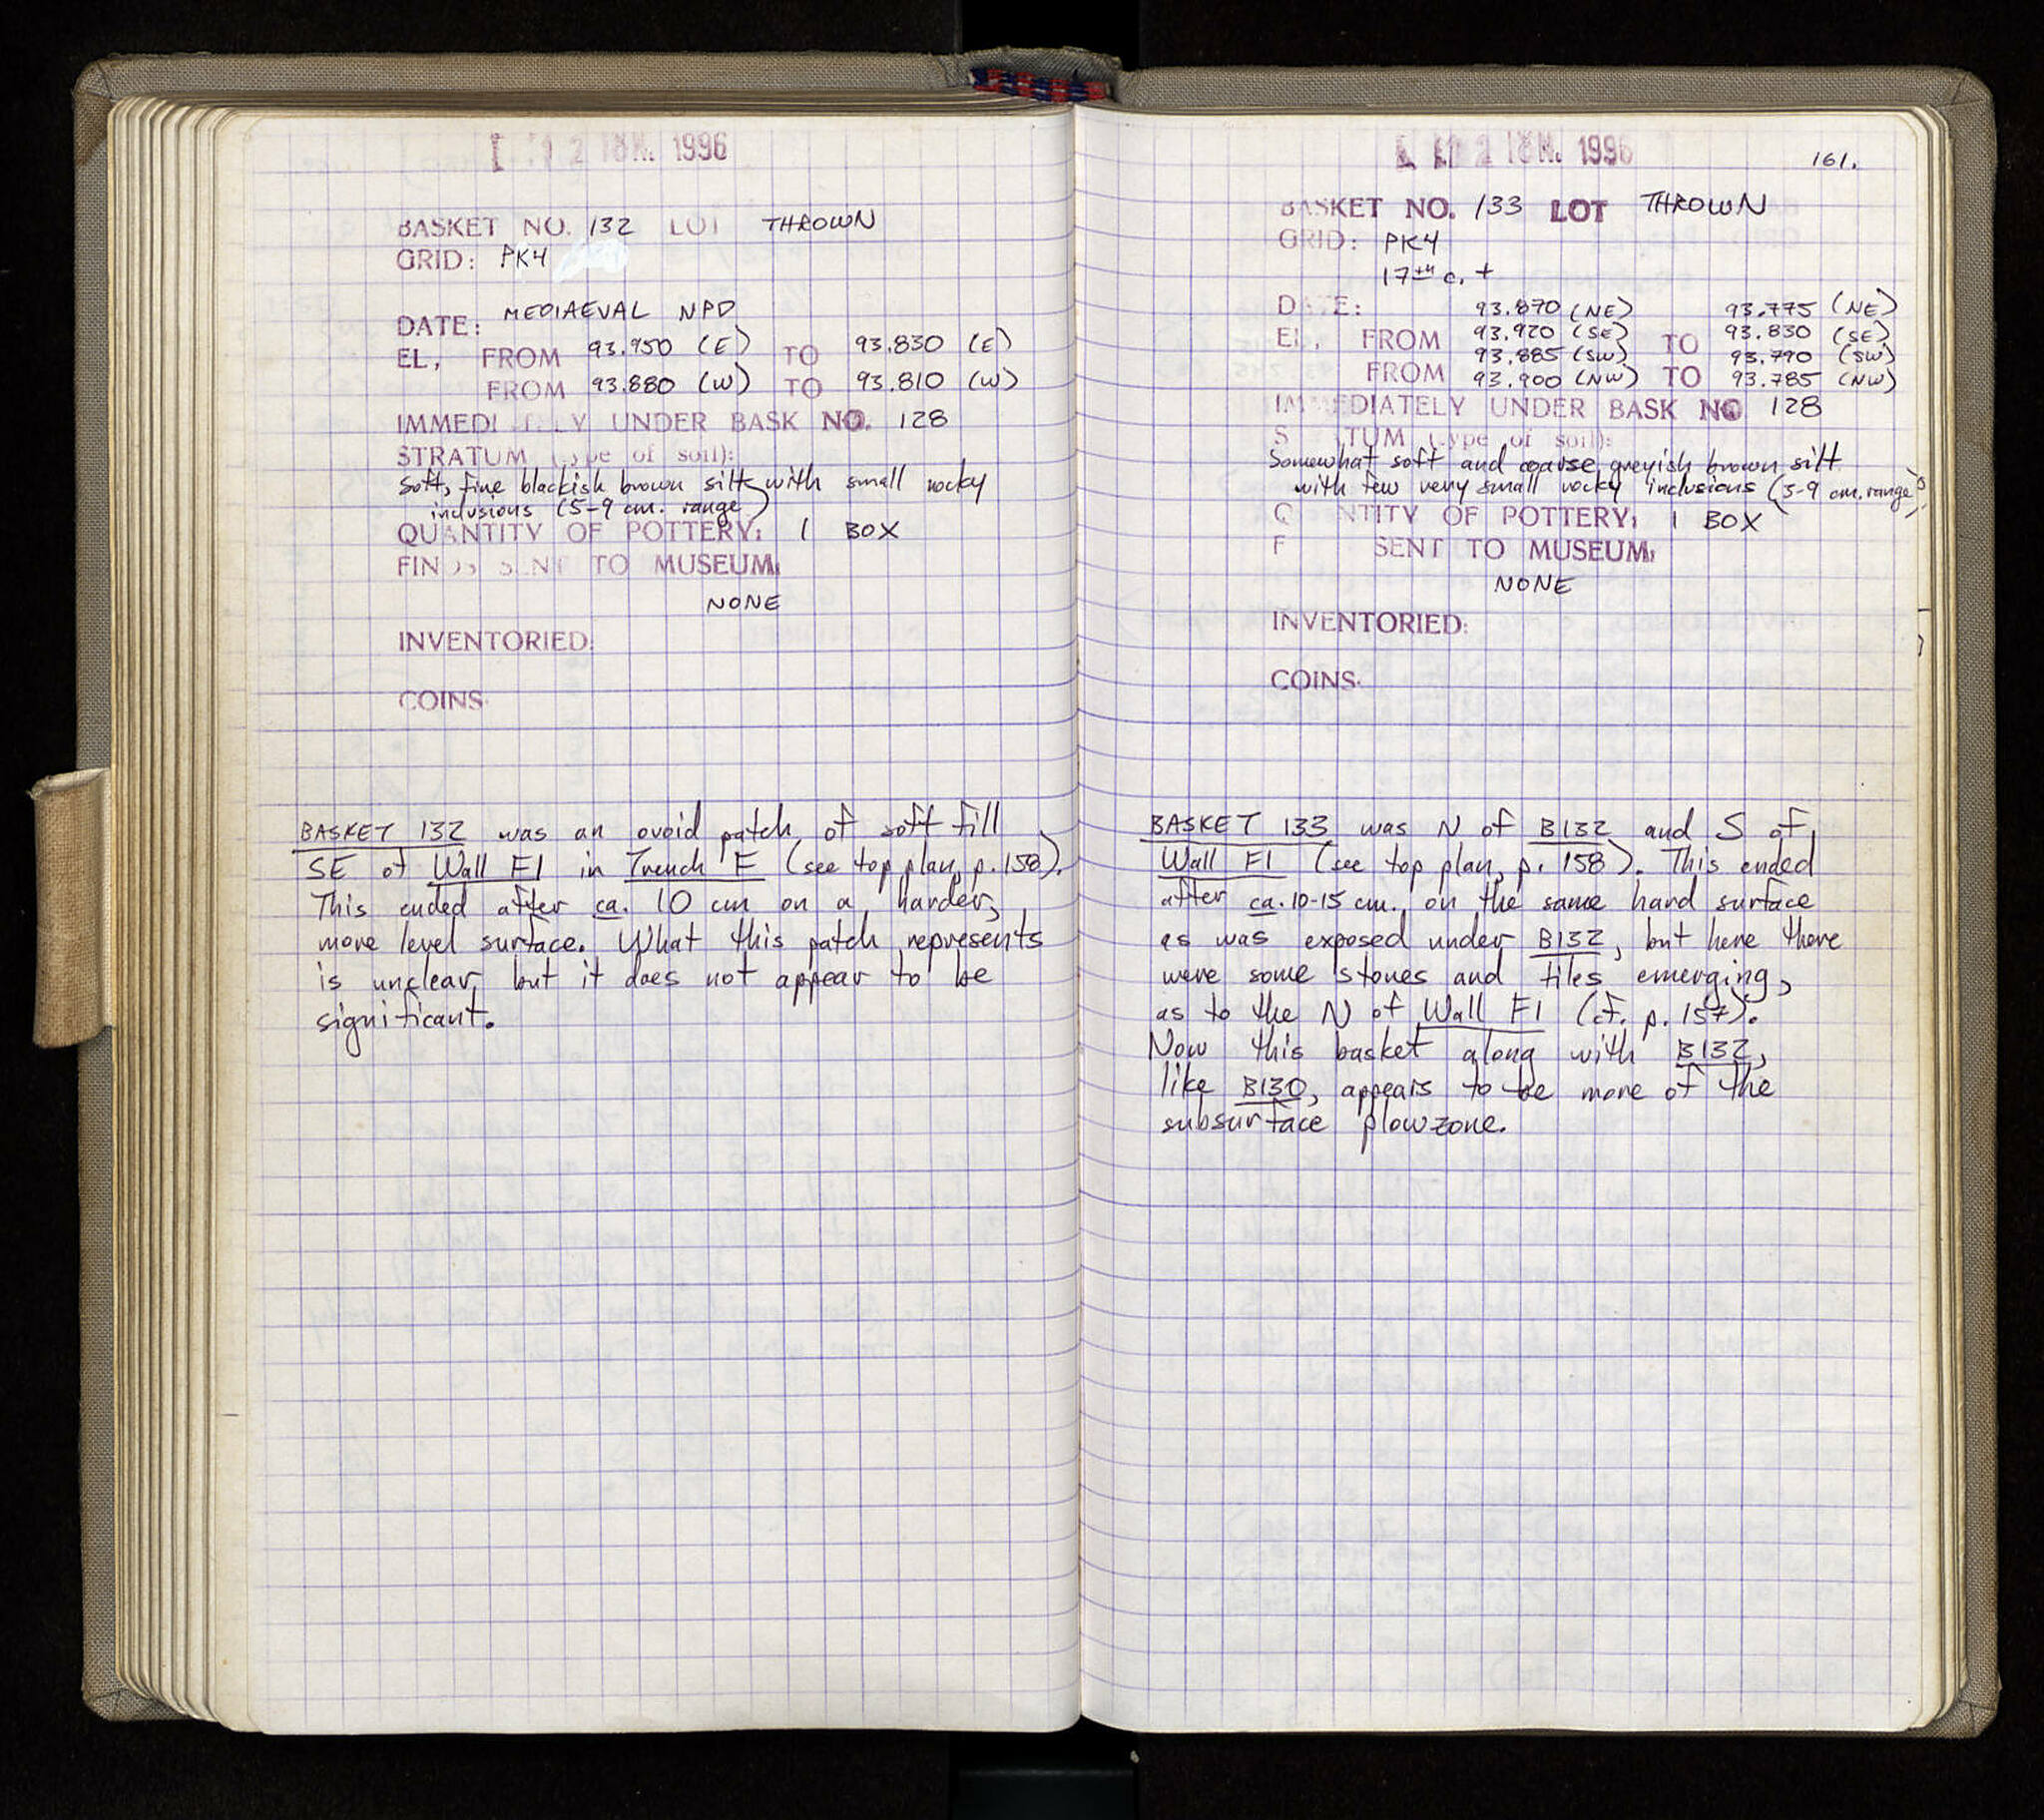 2 ΙΟΥΝ. 1996
BASKET NO. 132 LOT THROWN
GRID: PK4
MEDIAEVAL NPD
DATE:
EL, FROM 93.950 (E) TO 93.830 (E)
FROM 93.880 (W) TO 93.810 (W)
IMMEDIATELY UNDER BASK NO. 128
STRATUM (type of soil):
soft, fine blackish brown silt with small rocky
inclusions (5-9 cm. range)
QUANTITY OF POTTERY: 1 BOX
FINDS SENT TO MUSEUM:
NONE
INVENTORIED:
COINS:
BASKET 132 was an ovoid patch of soft fill
SE of Wall F1 in Trench F (see top plan, p. 158).
This ended after ca. 10 cm on a harder,
more level surface. What this patch represents
is unclear, but it does not appear to be
significant.
2 ΙΟΥΝ. 1996
161.
BASKET NO. 133 LOT THROWN
GRID: PK4
17th c. +
DATE: 93.870 (NE) 93.775 (NE)
EL, FROM 93.920 (SE) TO 93.830 (SE)
93.885 (SW) 93.790 (SW)
FROM 93.900 (NW) TO 93.785 (NW)
IMMEDIATELY UNDER BASK NO 128
STRATUM (type of soil):
Somewhat soft and coarse, greyish brown silt
with few very small rocky inclusions (5-9 cm. range)
QUANTITY OF POTTERY: 1 BOX
F SENT TO MUSEUM:
NONE
INVENTORIED:
COINS:
BASKET 133 was N of B132 and S of
Wall F1 (see top plan, p. 158). This ended
after ca. 10-15 cm. on the same hard surface
as was exposed under B132, but here there
were some stones and tiles emerging,
as to the N of Wall F1 (cf. p. 157).
Now this basket along with B132,
like B130, appears to be more of the
subsurface plowzone.